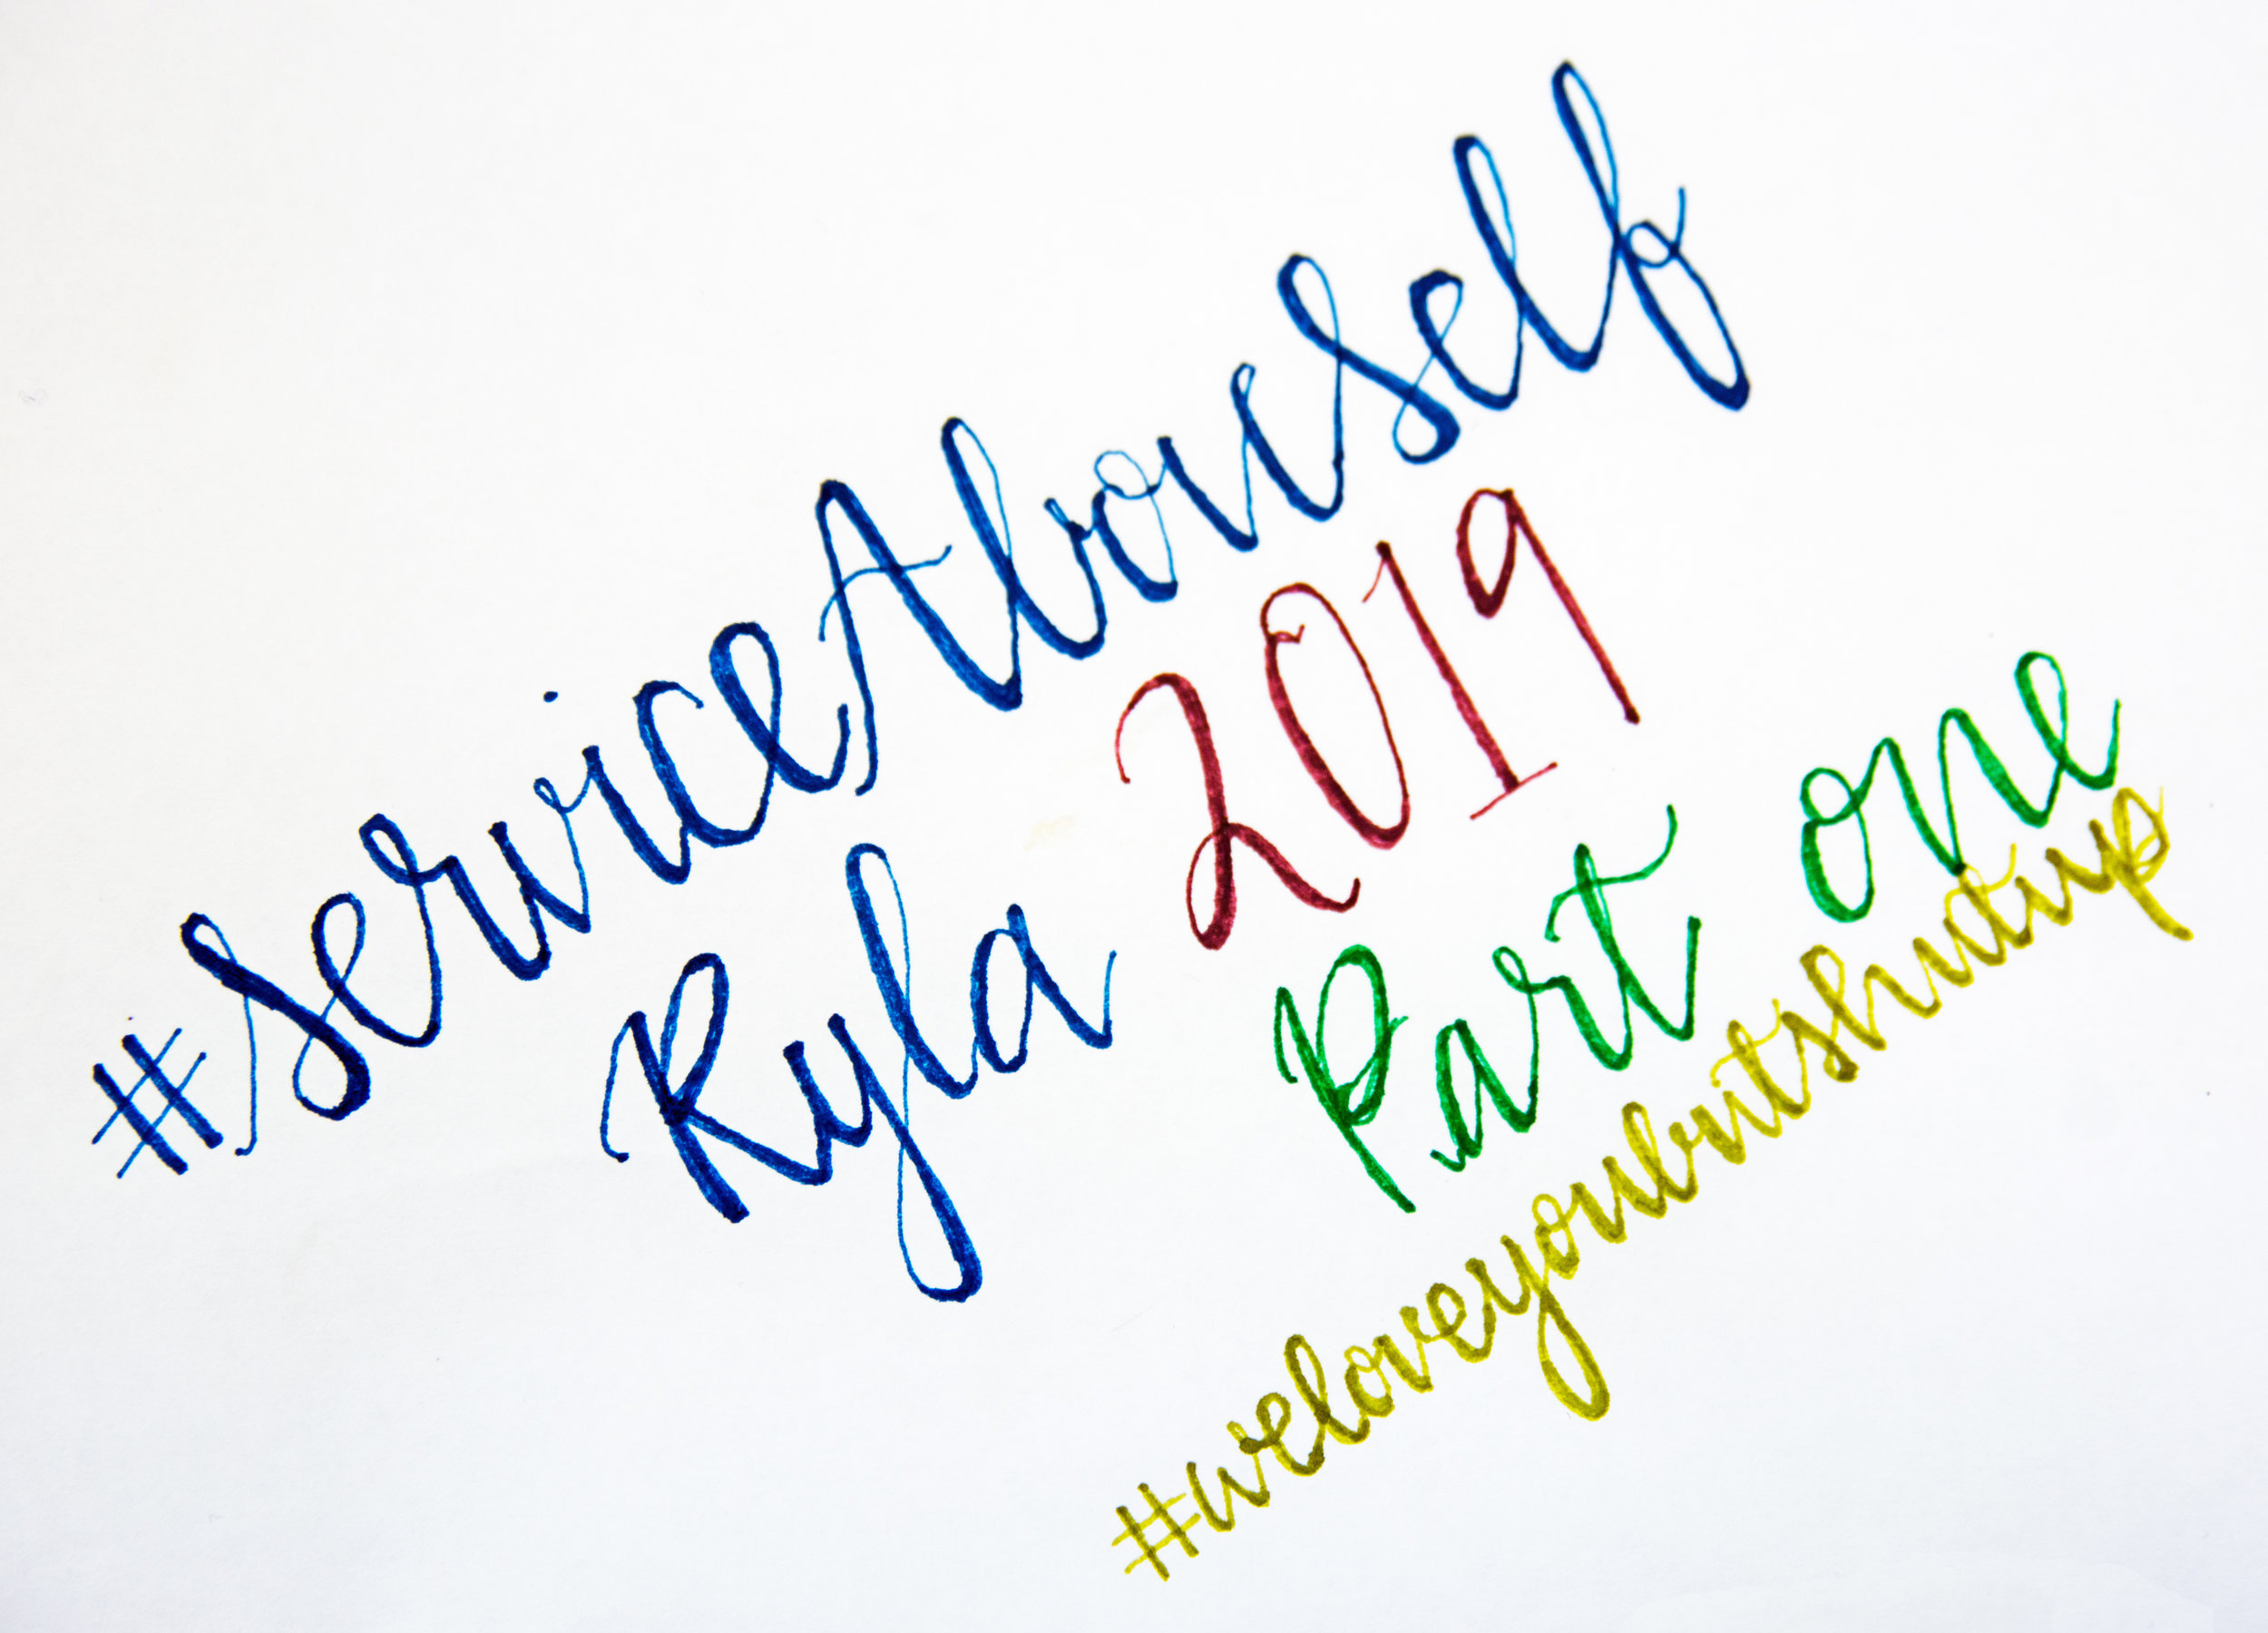 #ServiceAboveSelf
Ryla 2019
Part one
#weloveyoubutshutup